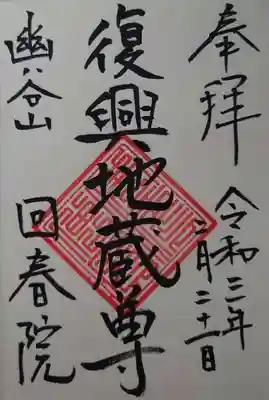 奉拝
令和三年
二月二十一日
復興地蔵尊
幽谷山
回春院